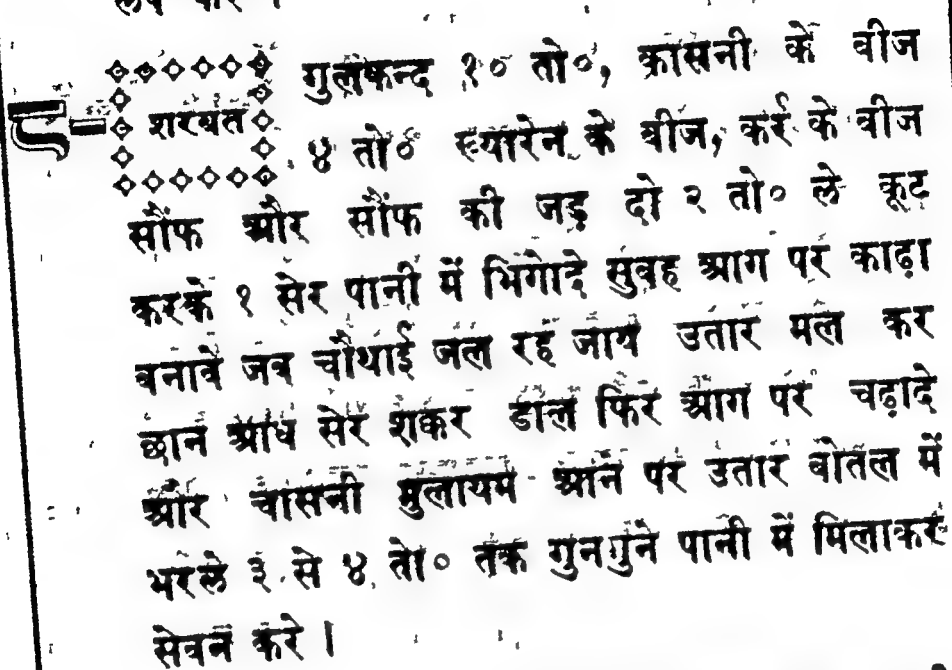 गुलकन्द १० तो०, कासनी के बीज
८- शरबत
४ तो० ख्यारेन के बीज, कर्र के बीज
सौंफ और सौंफ की जड़ दो २ तो० ले कूट
करके १ सेर पानी में भिगोदे सुवह आग पर काढ़ा
बनावे जब चौथाई जल रह जाय उतार मल कर
छान आध सेर शक्कर डाल फिर आग पर चढ़ादे
और चासनी मुलायम आने पर उतार बोतल में
भरले ३ से ४ तो० तक गुनगुने पानी में मिलाकर
सेवन करे ।